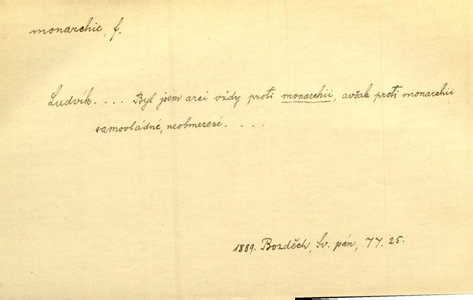 monarchie, f.
Ludvík. . . . Byl jsem arci vždy proti monarchii, avšak proti monarchii
samovládné, neobmezené. . . .
1889. Bozděch, Sv. pán, 77. 25.